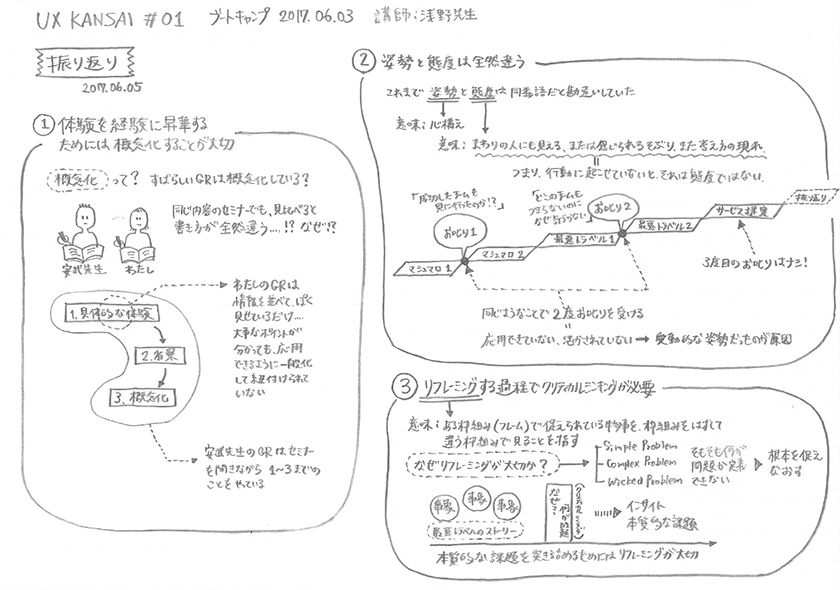 UX KANSAI #01 ブートキャンプ 2017.06.03 講師:浅野先生
振り返り
2017.06.05
① 体験を経験に昇華する
ためには概念化することが大切
概念化 って? すばらしいGRは概念化している?
同じ内容のセミナーでも、見比べると
書き方が全然違う....!? なぜ!?
安武先生 わたし
わたしのGRは
情報を並べて、ぱく
見せているだけ....
大事なポイントが
分かっても、応用
できるように一般化
して紐付けられて
いない
1.具体的な体験
2.省察
3.概念化
安武先生のGRはセミナー
を聞きながら 1〜3までの
ことをやっている
② 姿勢と態度は全然違う
これまで姿勢と態度は同義語だと勘違いしていた
意味:心構え
意味:まわりの人にも見える、または感じられるそぶり、また考え方の現れ
つまり、行動に起こせていないと、それは態度ではない。
「成功したチームを
見に行ったのか!?」
「どこのチームも
つまらないのに
なぜ
お叱り1
お叱り2
マシュマロ1
マシュマロ2
最悪トラベル1
最悪トラベル2
サービス提案
振り返り
3度目のお叱りはナシ!
同じようなことで2度お叱りを受ける
応用できていない、活かされていない → 受動的な姿勢だったのが原因
③ リフレーミングする過程でクリティカルシンキングが必要
意味:ある枠組み(フレーム)で捉えられている物事を、枠組みをはずして
違う枠組みで見ることを指す
なぜリフレーミングが大切か?
Simple Problem
Complex Problem
Wicked Problem
そもそも何が
問題か定義
できない
根本を捉え
なおす
事象 事象 事象
最悪トラベルのストーリー
なぜ?
何が問題
(クリティカルシンキング)
インサイト
本質的な課題
本質的な課題を突き詰めるためにはリフレーミングが大切